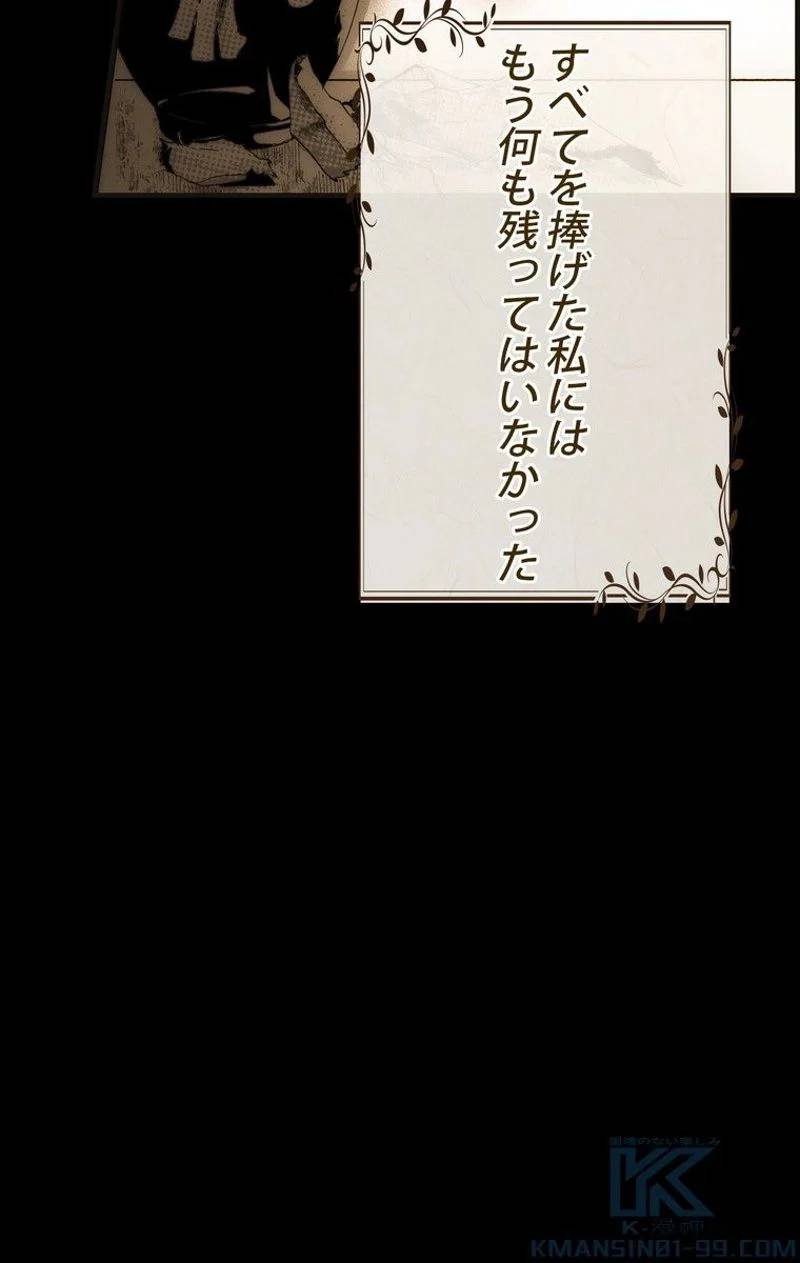 すべてを捧げた私には
もう何も残ってはいなかった
国境のない楽しみ
K-漫画
KMANSIN01-99.COM